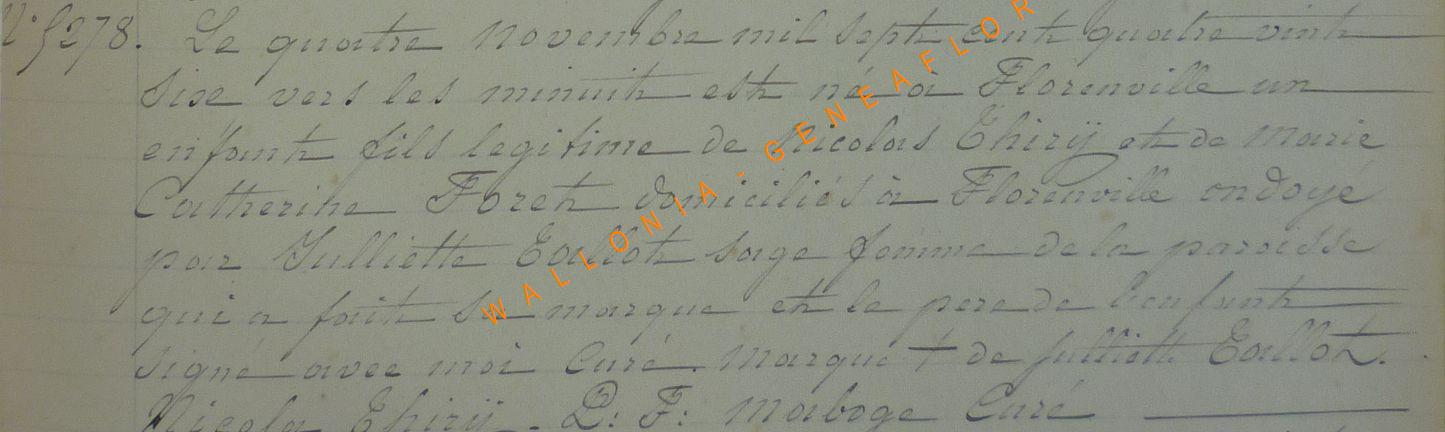 N° 5278. Le quatre novembre mil sept cent quatre vint
sixe vers les minuit est né à Florenville un
enfant fils legitime de Nicolas Thirÿ et de Marie
Catherine Foret domiciliés à Florenville ondoye
par Julliette Tallot sage femme de la paroisse
qui a fait sa marque et le pere de l'enfant
signé avec moi Curé. Marque + de Julliette Tallot.
Nicola Thirÿ. P: F: Maboge Curé
WALLONIA - GENEAFLOR